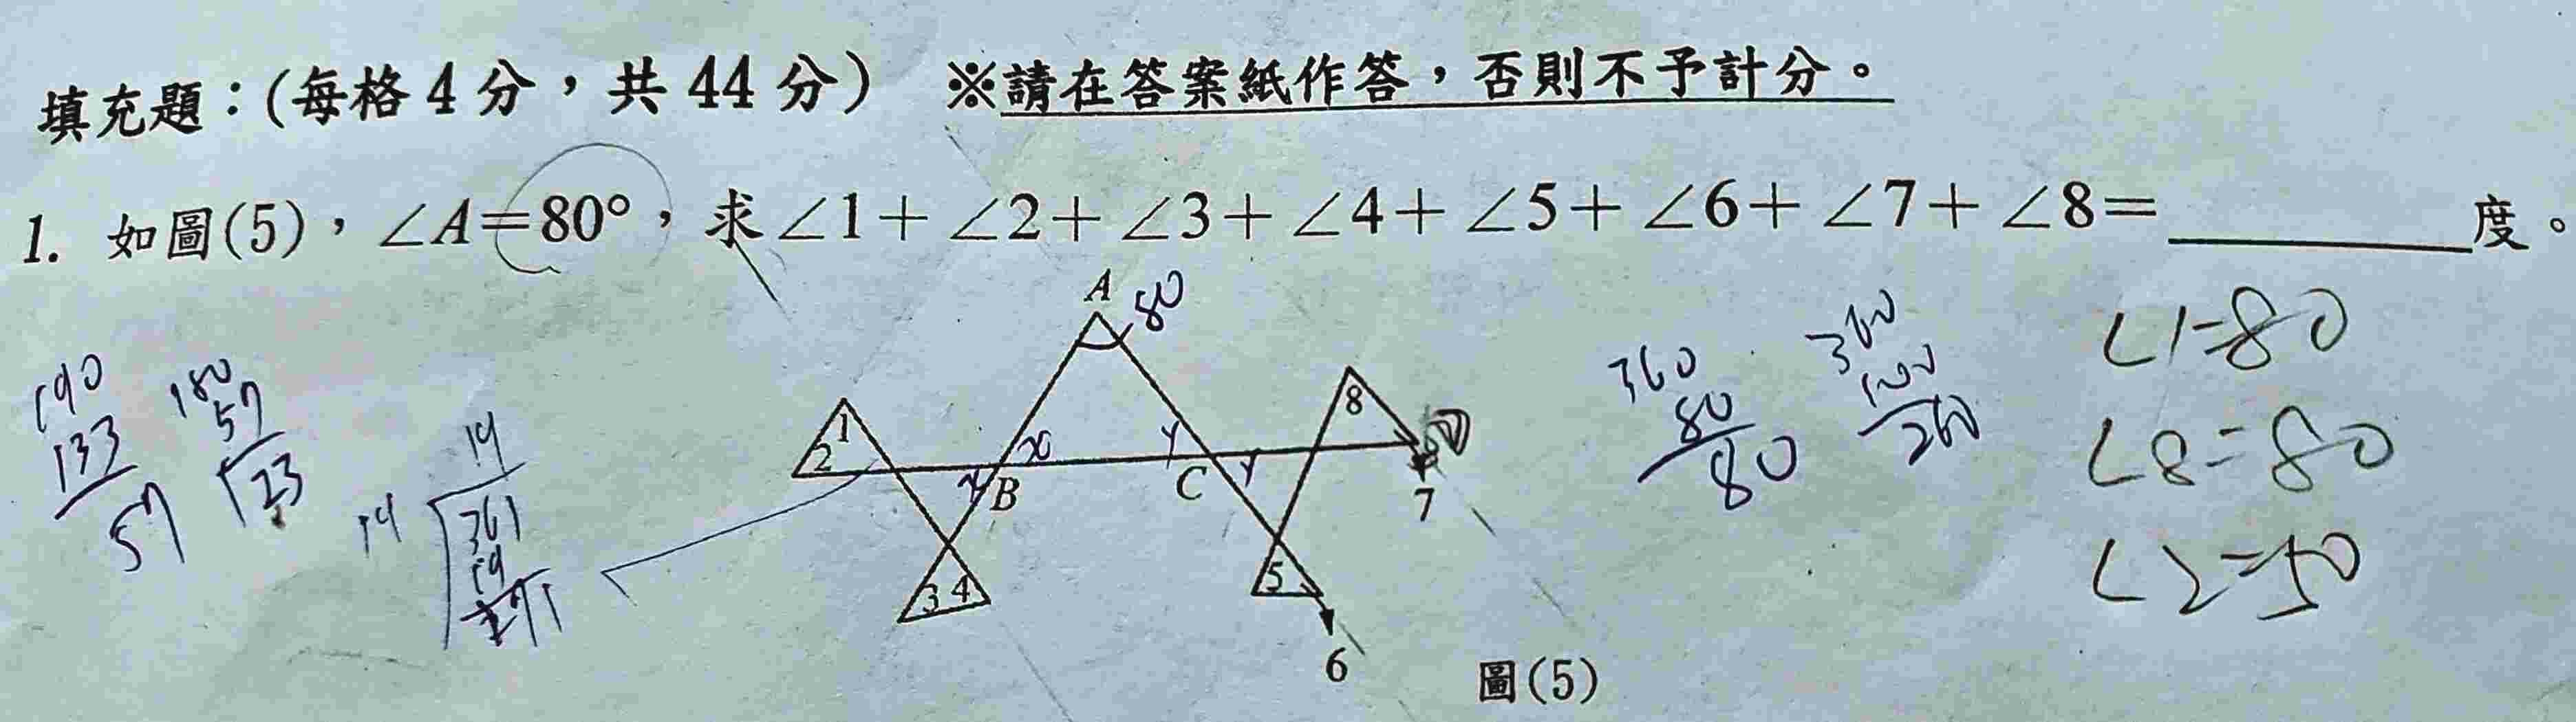 填充題：(每格4分，共44分) ※請在答案紙作答，否則不予計分。
1. 如圖(5)，∠A=80°，求∠1+∠2+∠3+∠4+∠5+∠6+∠7+∠8=________度。
A 80
1 2 x B y C y 8 7
3 4 5 6
圖(5)
190
133
57
180
57
123
19
19 361
19
171
360
80
80
360
100
260
∠1=80
∠8=80
∠2=50